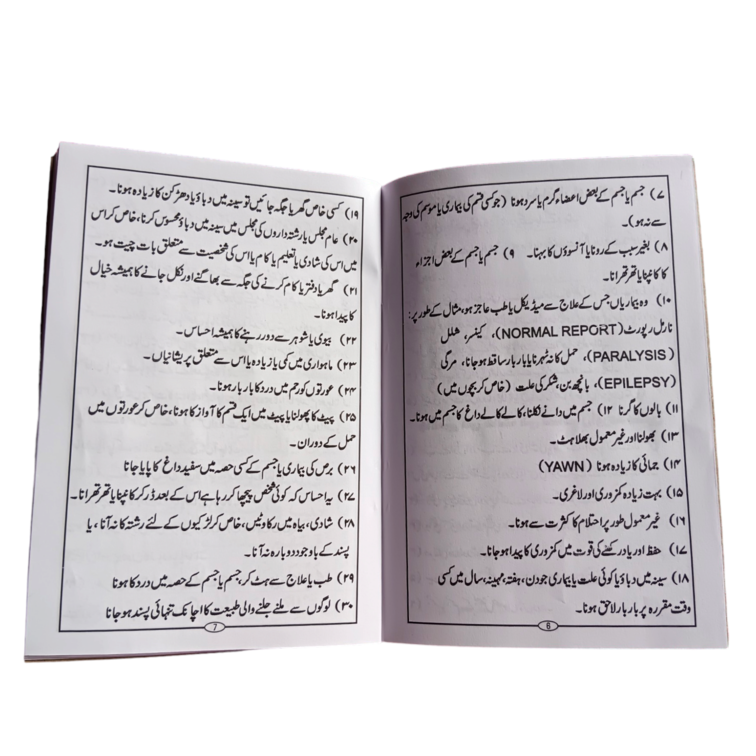 ۷) جسم یا جسم کے بعض اعضاء گرم یا سرد ہونا (جو کسی قسم کی بیماری یا موسم کی وجہ
سے نہ ہو)۔
۸) بغیر سبب کے رونا یا آنسوؤں کا بہنا۔ ۹) جسم یا جسم کے بعض اجزاء
کا کانپنا یا تھرتھرانا۔
۱۰) وہ بیماریاں جس کے علاج سے میڈیکل یا طب عاجز ہو، مثال کے طور پر:
نارمل رپورٹ (NORMAL REPORT)، کینسر، شلل
(PARALYSIS)، حمل کا نہ ٹہرنا یا بار بار ساقط ہو جانا، مرگی
(EPILEPSY)، بانجھ پن، شکر کی علت (خاص کر بچوں میں)
۱۱) بالوں کا گرنا ۱۲) جسم میں دانے نکلنا، کالے کالے داغ کا جسم میں ہونا۔
۱۳) بھولنا اور غیر معمول بھلاہٹ۔
۱۴) جمائی کا زیادہ ہونا (YAWN)
۱۵) بہت زیادہ کمزوری اور لاغری۔
۱۶) غیر معمول طور پر احتلام کا کثرت سے ہونا۔
۱۷) حفظ اور یاد رکھنے کی قوت میں کمزوری کا پیدا ہو جانا۔
۱۸) سینہ میں دباؤ یا کوئی علت یا بیماری جو دن، ہفتہ، مہینہ، سال میں کسی
وقت مقررہ پر بار بار لاحق ہونا۔
6
۱۹) کسی خاص گھر یا جگہ جائیں تو سینہ میں دباؤ یا دھڑکن کا زیادہ ہونا۔
۲۰) عام مجلس یا رشتہ داروں کی مجلس میں سینہ میں دباؤ محسوس کرنا، خاص کر اس
میں اس کی شادی یا تعلیم یا کام یا اس کی شخصیت سے متعلق بات چیت ہو۔
۲۱) گھر یا دفتر یا کام کرنے کی جگہ سے بھاگنے اور نکل جانے کا ہمیشہ خیال
کا پیدا ہونا۔
۲۲) بیوی یا شوہر سے دور رہنے کا ہمیشہ احساس۔
۲۳) ماہواری میں کمی یا زیادہ یا اس سے متعلق پریشانیاں۔
۲۴) عورتوں کو رحم میں درد کا بار بار ہونا۔
۲۵) پیٹ کا پھولنا یا پیٹ میں ایک قسم کا آواز کا ہونا، خاص کر عورتوں میں
حمل کے دوران۔
۲۶) برص کی بیماری یا جسم کے کسی حصہ میں سفید داغ کا پایا جانا
۲۷) یہ احساس کہ کوئی شخص پیچھا کر رہا ہے اس کے بعد ڈر کر کانپنا یا تھرتھرانا۔
۲۸) شادی، بیاہ میں رکاوٹیں، خاص کر لڑکیوں کے لئے رشتہ کا نہ آنا، یا
پسند کے باوجود دوبارہ نہ آنا۔
۲۹) طب یا علاج سے ہٹ کر جسم یا جسم کے حصہ میں درد کا ہونا
۳۰) لوگوں سے ملنے جلنے والی طبیعت کا اچانک تنہائی پسند ہو جانا
7